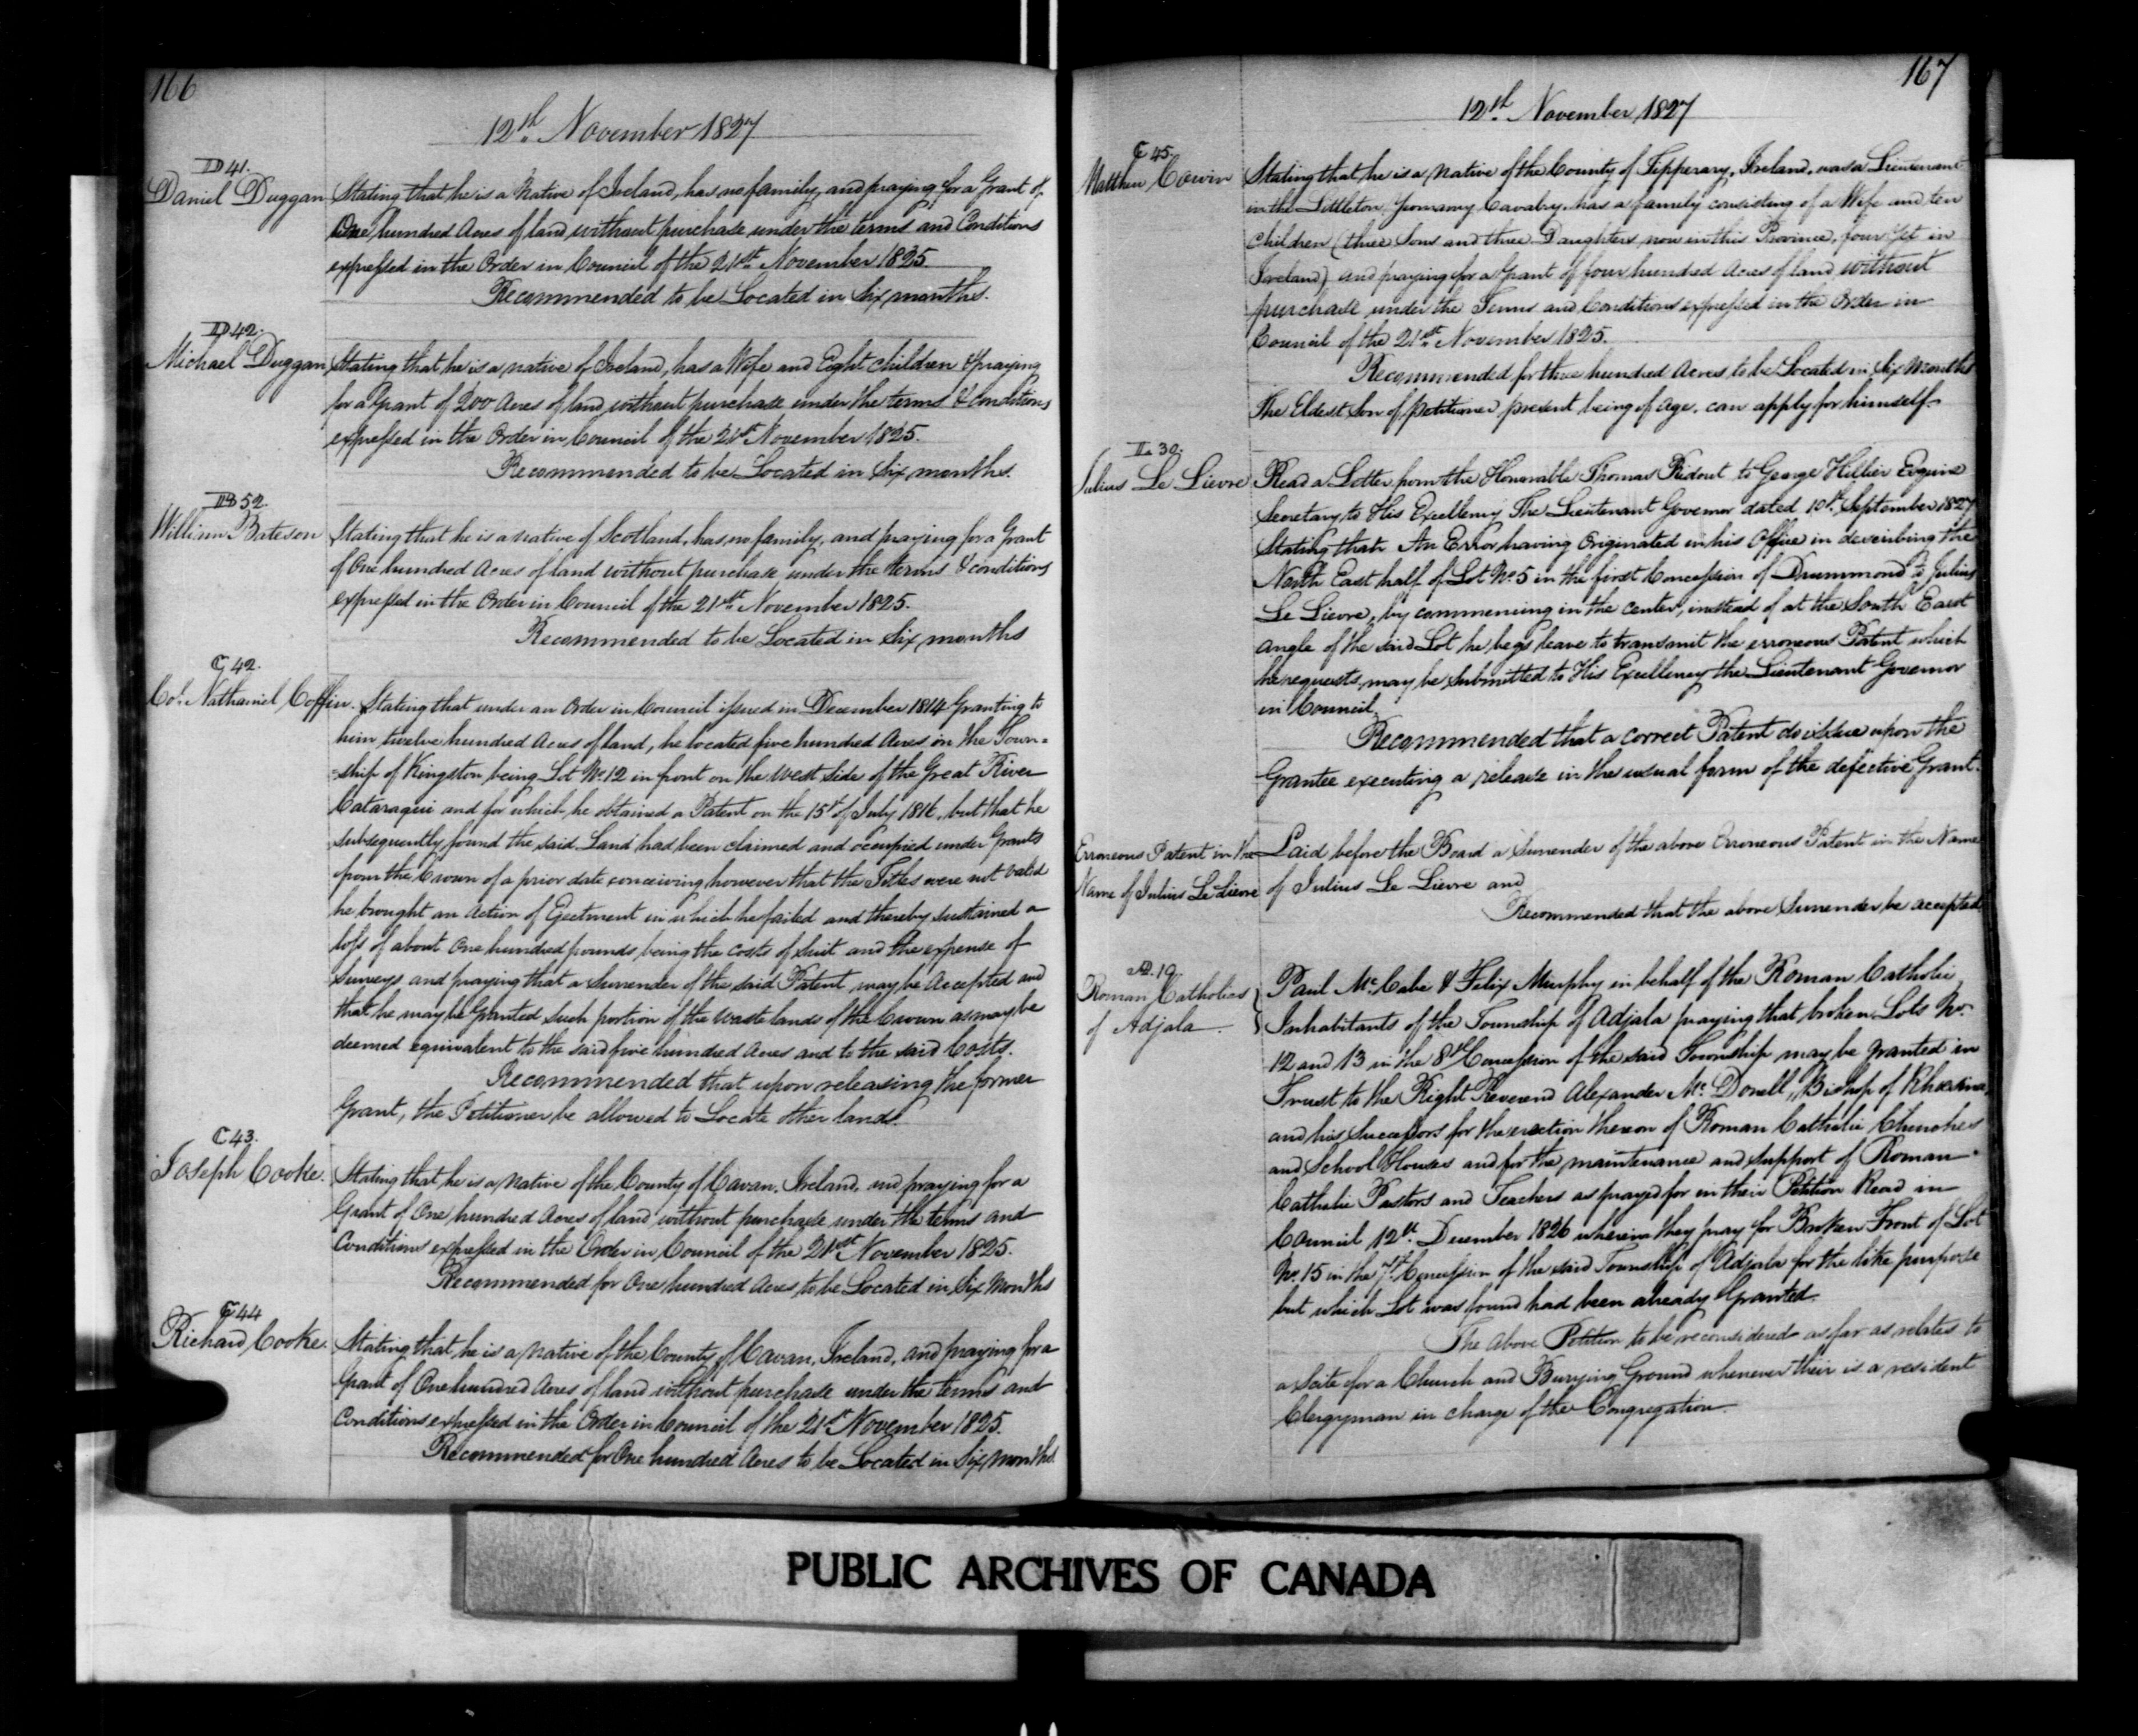 166
12th November 1827
D 41.
Daniel Duggan
Stating that he is a Native of Ireland, has no family, and praying for a Grant of
One hundred Acres of land without purchase under the terms and Conditions
expressed in the Order in Council of the 21st November 1825.
Recommended to be Located in Six months.
D 42.
Michael Duggan
Stating that he is a native of Ireland, has a Wife and Eight children & praying
for a Grant of 200 Acres of land without purchase under the terms & conditions
expressed in the Order in Council of the 21st November 1825.
Recommended to be Located in Six months.
B 52.
William Bateson
Stating that he is a native of Scotland, has no family, and praying for a Grant
of One hundred Acres of land without purchase under the terms & conditions
expressed in the Order in Council of the 21st November 1825.
Recommended to be Located in Six months
C 42.
Col. Nathaniel Coffin.
Stating that under an Order in Council issued in December 1814 Granting to
him twelve hundred Acres of land, he located five hundred Acres in the Town=
=ship of Kingston being Lot No. 12 in front on the west side of the Great River
Cataraqui and for which he obtained a Patent on the 15th of July 1816, but that he
subsequently found the said Land had been claimed and occupied under Grants
from the Crown of a prior date conceiving however that the Titles were not valid
he brought an Action of Ejectment in which he failed and thereby sustained a
loss of about One hundred pounds being the costs of suit and the expense of
Surveys and praying that a Surrender of the said Patent may be Accepted and
that he may be Granted such portion of the waste lands of the Crown as may be
deemed equivalent to the said five hundred Acres and to the said Costs.
Recommended that upon releasing the former
Grant, the Petitioner be allowed to Locate other lands.
C 43.
Joseph Cooke.
Stating that he is a Native of the County of Cavan, Ireland, and praying for a
Grant of One hundred Acres of land without purchase under the terms and
Conditions expressed in the Order in Council of the 21st November 1825.
Recommended for One hundred Acres to be Located in Six Months
C 44
Richard Cooke.
Stating that he is a Native of the County of Cavan, Ireland, and praying for a
Grant of One hundred Acres of land without purchase under the terms and
Conditions expressed in the Order in Council of the 21st November 1825.
Recommended for One hundred Acres to be Located in Six months.
167
12th November 1827
C 45.
Matthew Cowin
Stating that he is a Native of the County of Tipperary, Ireland, was a Lieutenant
in the Littleton Yeomanry Cavalry, has a family consisting of a Wife and ten
Children (three Sons and three Daughters now in this Province, four yet in
Ireland) and praying for a Grant of four hundred Acres of land without
purchase under the Terms and Conditions expressed in the Order in
Council of the 21st November 1825.
Recommended for three hundred Acres to be Located in Six Months
The Eldest Son of Petitioner present being of Age, can apply for himself.
L 30.
Julius Le Lievre
Read a Letter from the Honorable Thomas Ridout to George Hillier Esquire
Secretary to His Excellency The Lieutenant Governor dated 10th September 1827
Stating that An Error having Originated in his Office in describing the
North East half of Lot No. 5 in the first Concession of Drummond to Julius
Le Lievre, by commencing in the center, instead of at the South East
angle of the said Lot he begs leave to transmit the erroneous Patent which
he requests may be submitted to His Excellency the Lieutenant Governor
in Council.
Recommended that a correct Patent do issue upon the
Grantee executing a release in the usual form of the defective Grant.
Erroneous Patent in the
Name of Julius Le Lievre
Laid before the Board a Surrender of the above Erroneous Patent in the Name
of Julius Le Lievre and
Recommended that the above Surrender be accepted
19
Roman Catholics
of Adjala.
Paul McCabe & Felix Murphy in behalf of the Roman Catholic
Inhabitants of the Township of Adjala praying that broken Lots No.
12 and 13 in the 8th Concession of the said Township may be granted in
Trust to the Right Reverend Alexander McDonell, Bishop of Rhesina,
and his Successors for the erection thereon of Roman Catholic Churches
and School Houses and for the maintenance and support of Roman
Catholic Pastors and Teachers as prayed for in their Petition Read in
Council 12th December 1826 wherein they pray for Broken Front of Lot
No. 15 in the 7th Concession of the said Township of Adjala for the like purpose
but which Lot was found had been already Granted.
The above Petition to be reconsidered as far as relates to
a Scite for a Church and Burying Ground whenever their is a resident
Clergyman in charge of the Congregation.
PUBLIC ARCHIVES OF CANADA